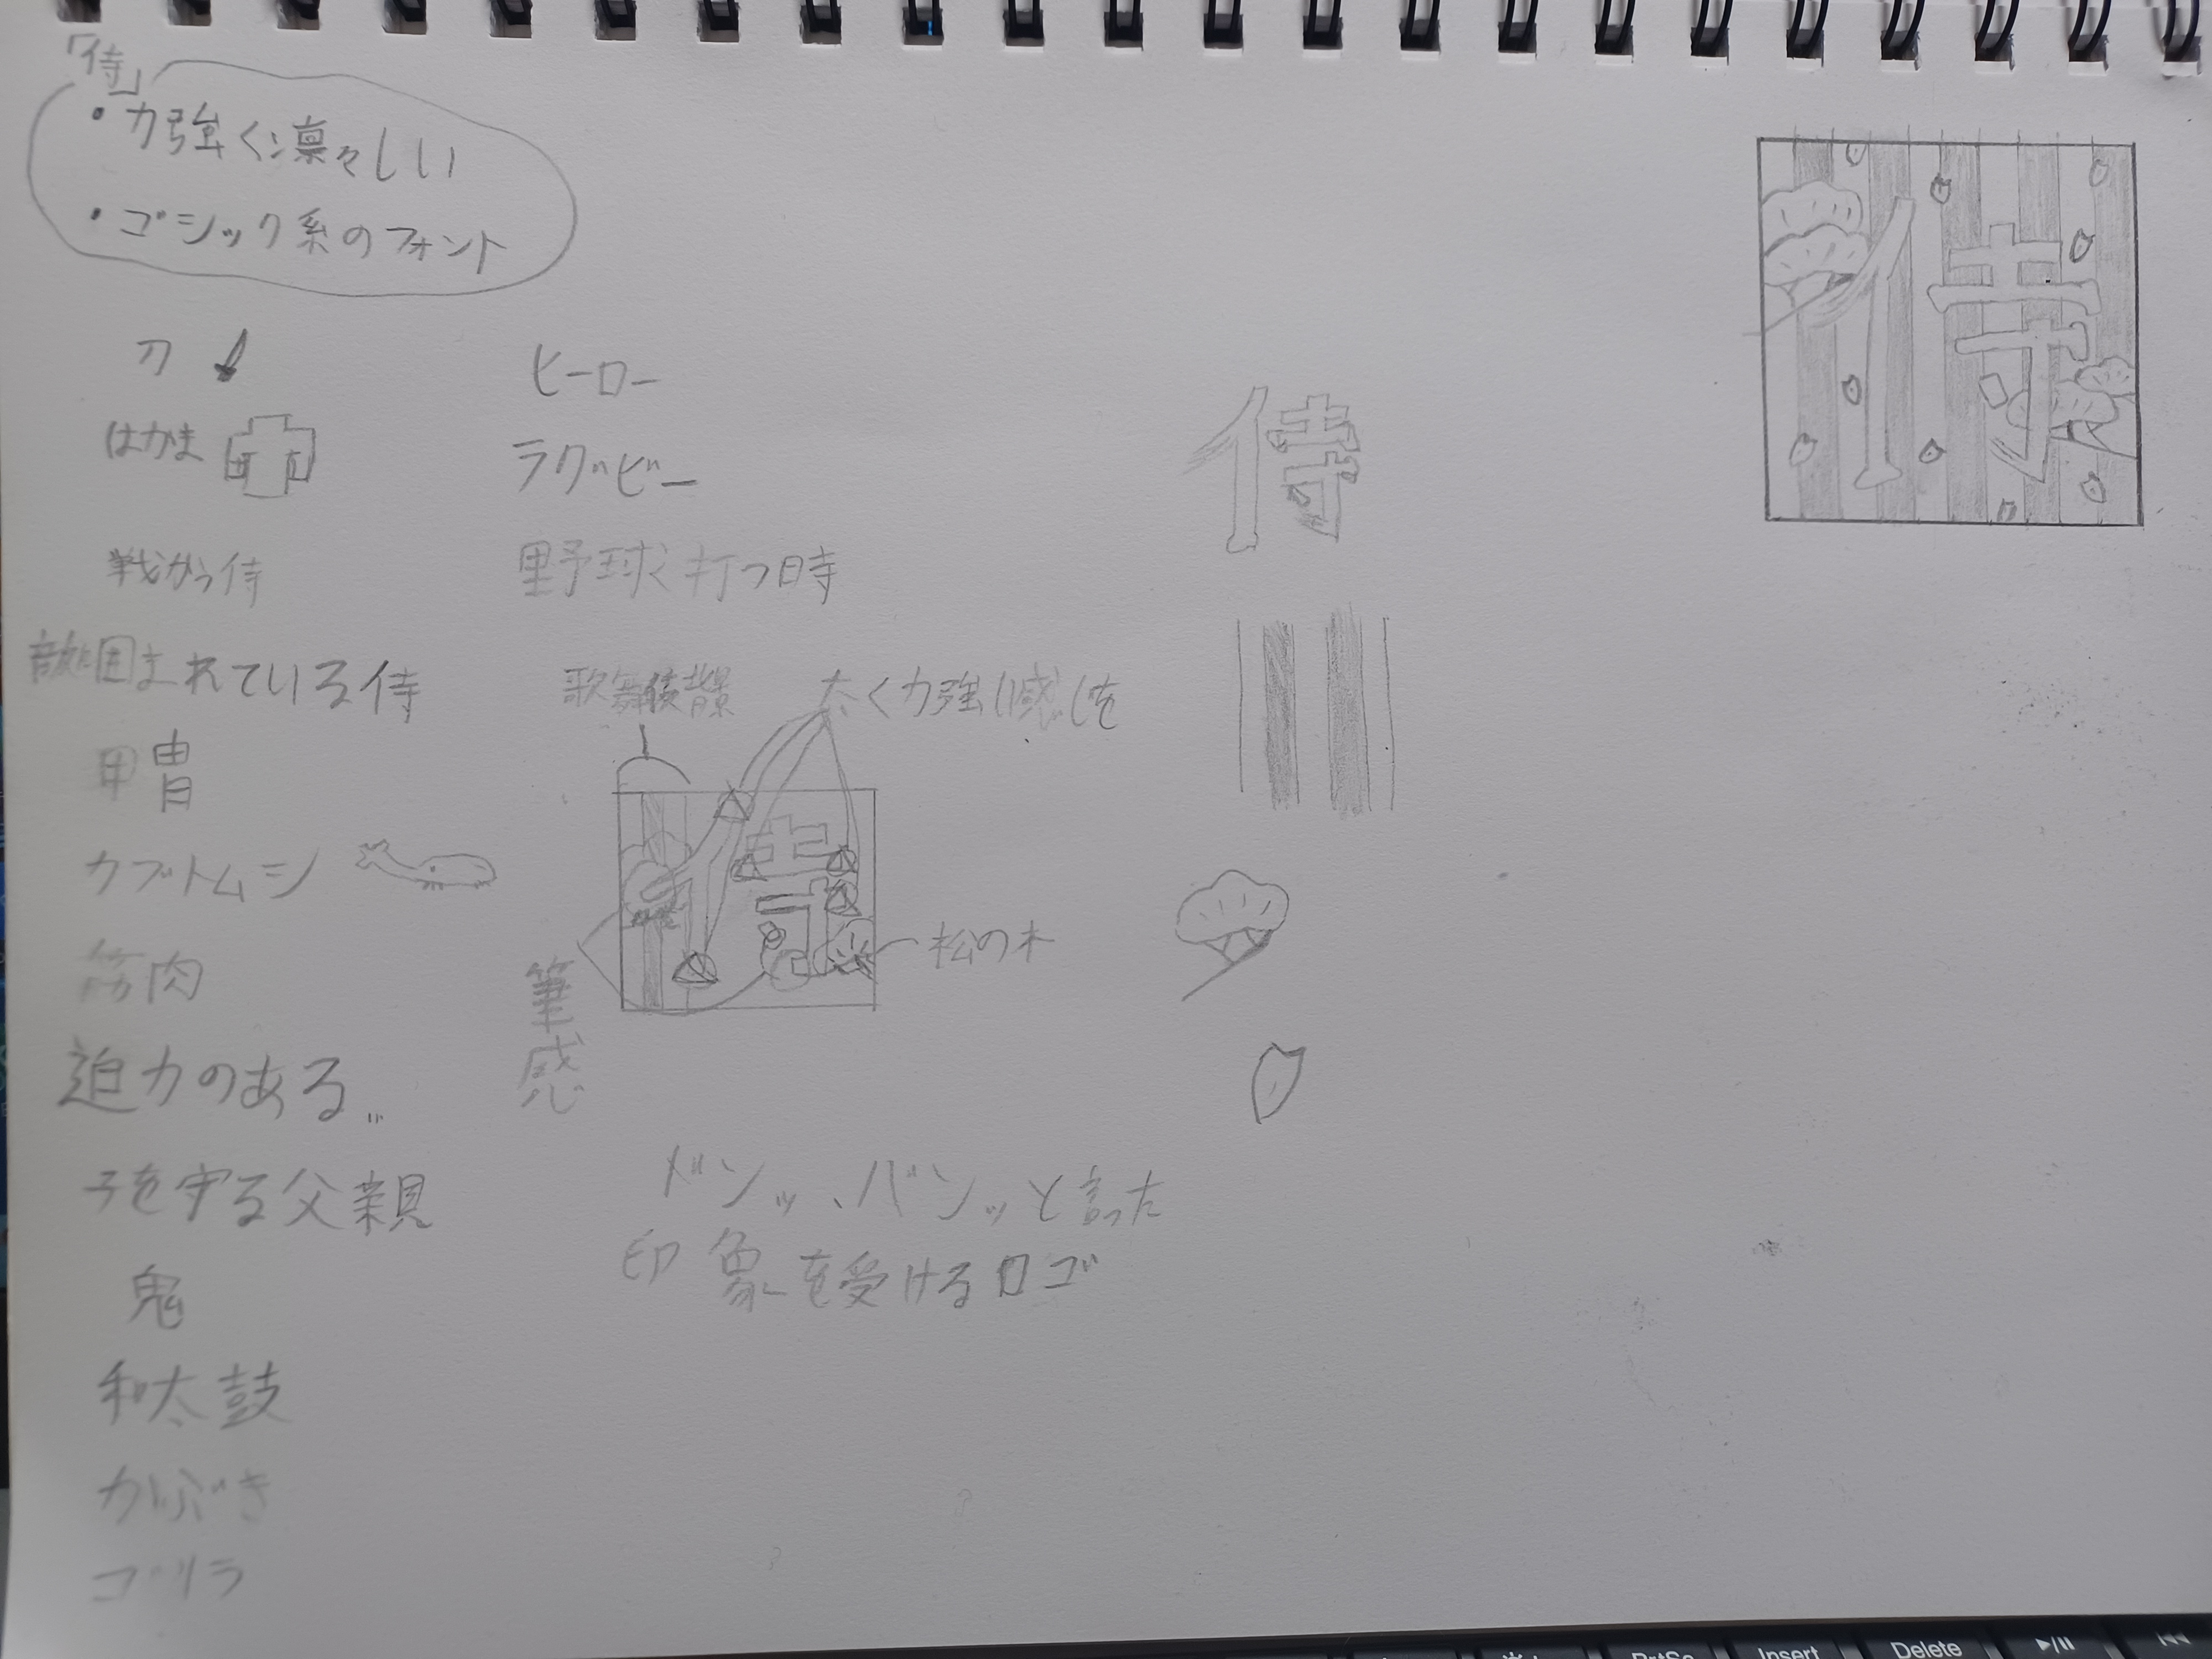 「侍」
・力強く凛々しい
・ゴシック系のフォント
刀
はかま
戦かう侍
敵に囲まれている侍
甲冑
カブトムシ
筋肉
迫力のある…
子を守る父親
鬼
和太鼓
かぶき
ゴリラ
ヒーロー
ラグビー
野球く打つ時
歌舞伎背景
太く力強い感じを
侍
松の木
筆感
ドンッ、バンッと言った
印象を受けるロゴ
侍
侍
Insert
Delete